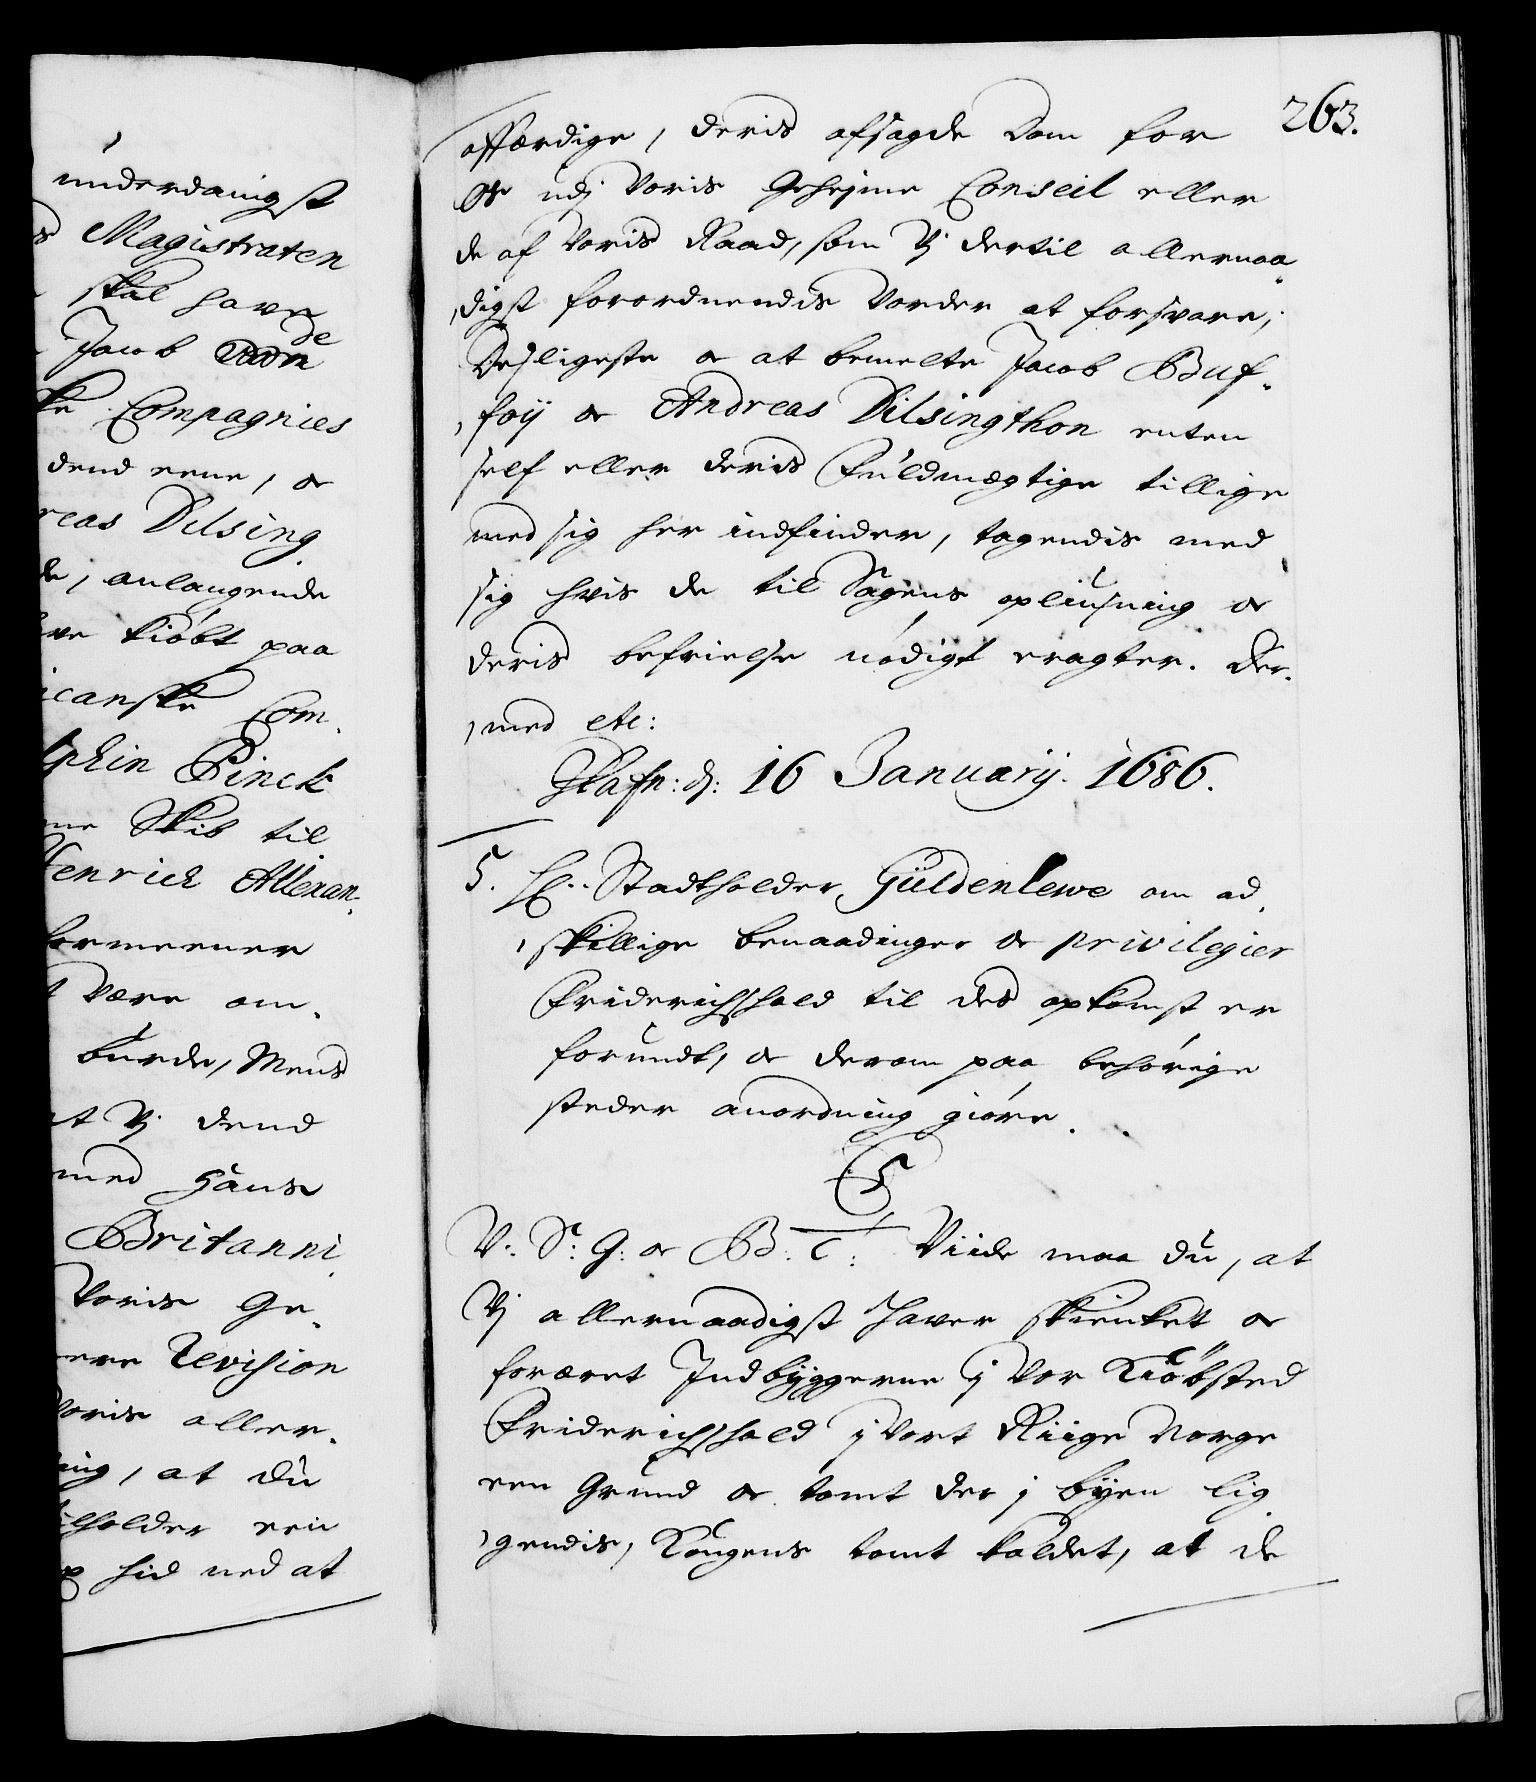 underdanigst
Magistraten
skal have
Jacob de
ke Compagnies
dend eene, oc
reas Dilsing
de, anlangende
ve kiöbt paa
icanske Com
lphin Pinck
me Skib til
Henrich Allexan-
formeener
t være om
burde, Mens
at Vj dend
med Hans
Britanni
Voris Ge
ere Revision
Voris aller
ing, at du
holder een
hid ned at
263.
affærdige, deris afsagde Dom for
Os udj Voris Geheyme Conseil eller
de af Voris Raad, som Vj dertil allernaa
digst forordnendis Vorder at forsvare;
Desligeste oc at bemelte Jacob Buf-
foy oc Andreas Dilsingthon enten
self eller deris Fuldmægtige tillige
med sig her indfinder, tagendis med
sig hvis de til Sagens opliusning oc
deris befrielse nödigt eragter. Der
med etc:
Hafn: d: 16 Januarij. 1686.
5. H: Stadtholder Güldenlewe om ad
skillige benaadinger oc privilegier
Friderichshald til des opkomst er
forundt, oc derom paa behörige
steder anordning giöre.
C5
V: S: G: oc B: T: Viide maa du, at
Vj allernaadigst haver skienket oc
foræret Indbyggerne j Vor Kiöbsted
Friderichshald j Vort Riige Norge
een Grund oc tomt der j byen lig
gendis, Kongens tomt kaldet, at de